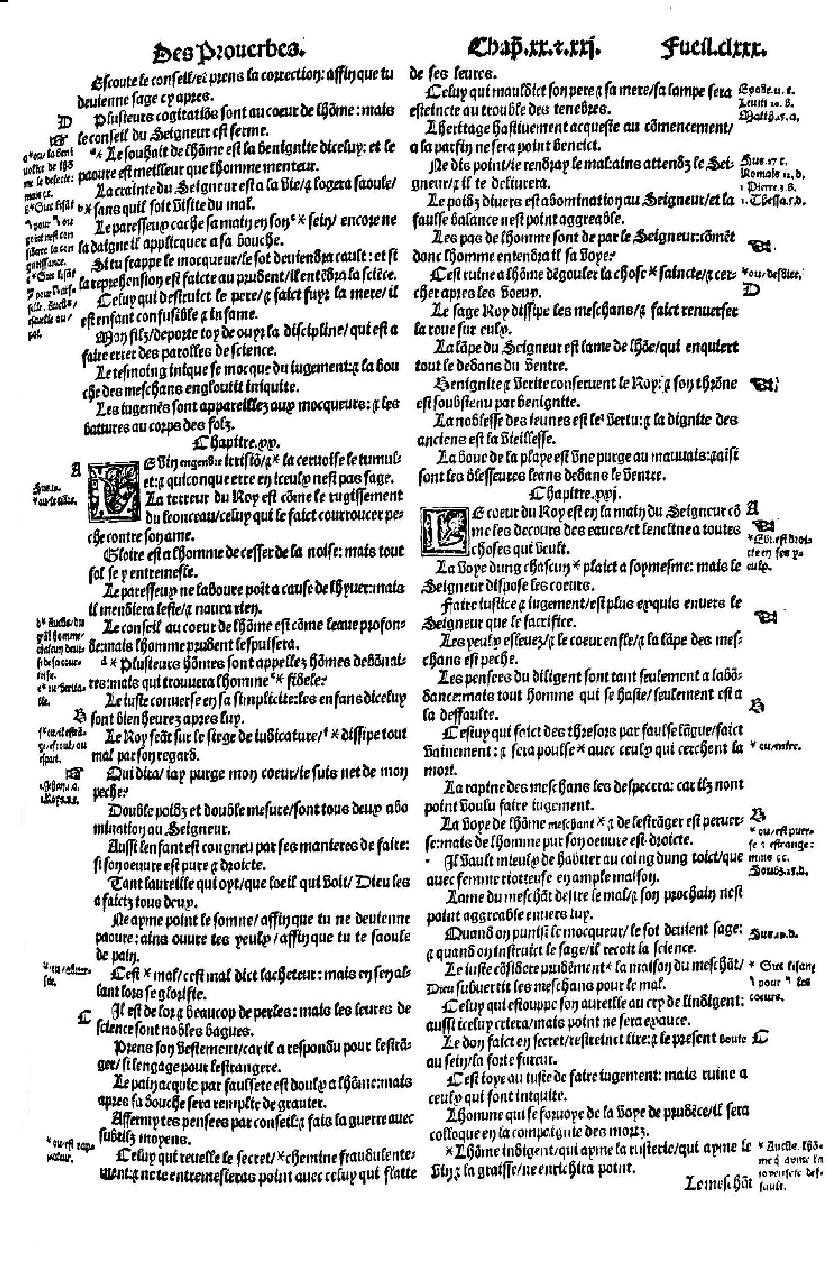 Des Prouerbes.
Chap̃.xx.⁊.xxj.
Fueil.clxxx.
Escoute le conseil/et prens la correction: affin que tu
deuienne sage cy apres.
Plusieurs cogitatiõs sont au coeur de lhõme: mais
le conseil du Seigneur est ferme.
Le souhait de lhõme est la benignite diceluy: et le
paoure est meilleur que lhomme menteur.
La crainte du Seigneur est a la vie/⁊ logera saoule/
sans quil soit visite du mal.
Le paresseux cache sa main en son * sein/ encore ne
la daigne il appliquer a sa bouche.
Si tu frappe le mocqueur/le sot deuiendra cault: et si
la reprehension est faicte au prudent/il entẽdra la sciẽce.
Celuy qui destruict le pere/⁊ faict fuyr la mere/ il
est enfant confusible ⁊ infame.
Mon filz/deporte toy de ouyr la discipline/ qui est a
faire errer des parolles de science.
Le tesmoing inique se mocque du iugement:⁊ la bou
che des meschans engloutit iniquite.
Les iugemẽs sont appareillez aux mocqueurs: ⁊ les
battures au corps des folz.
Chapitre.xx.
A
LE vin engendre irrisiõ/⁊ * la ceruoise le tumul-
te:⁊ quiconque erre en iceulx nest pas sage.
La terreur du Roy est cõme le rugissement
du leonceau/celuy qui le faict courroucer pe-
che contre son ame.
Gloire est a lhomme de cesser de la noise: mais tout
fol se y entremesle.
Le paresseux ne laboure poit a cause de lhyuer:mais
il mendiera leste/⁊ naura rien.
Le conseil au coeur de lhomme est cõme leaue profon-
de:mais lhomme prudent lespuisera.
Plusieurs hõmes sont appellez hõmes debõnai-
res:mais qui trouuera lhomme * fidele?
Le iuste conuerse en sa simplicite:les enfans diceluy
sont bien heurez apres luy.
B
Le Roy seãt sur le siege de iudicature/ * dissipe tout
mal par son regard.
Qui dira/iay purge mon coeur/ie suis net de mon
peche?
Double poidz et double mesure/sont tous deux abo
mination au Seigneur.
Aussi lenfant est congneu par ses manieres de faire:
si son oeuure est pure ⁊ droicte.
Tant laureille qui oyt/que loeil qui voit/ Dieu les
a faictz tous deux.
Ne ayme point le somne/affin que tu ne deuienne
paoure: ains ouure tes yeulx/affin que tu te saoule
de pain.
Cest * mal/cest mal dict lacheteur: mais en sen al-
lant lors se glorifie.
C
Il est de lor⁊ beaucop de perles: mais les leures de
science sont nobles bagues.
Prens son vestement/car il a respondu pour lestrã-
ger/⁊ lengage pour lestrangere.
Le pain acquis par faulsete est doulx a lhõme:mais
apres sa bouche sera remplie de grauier.
Afferme tes pensees par conseil:⁊ fais la guerre auec
subtilz moyens.
Celuy qui reuelle le secret/*chemine fraudulente-
ment:⁊ ne te entremesleras point auec celuy qui flatte
de ses leures.
Celuy qui mauldict son pere ⁊ sa mere/sa lampe sera
esteincte au trouble des tenebres.
Lheritage hastiuement acqueste au cõmencement/
a la parfin ne sera point beneict.
Ne dis point/ie rendray le mal:ains attendz le Sei-
gneur/⁊ il te deliurera.
Le poidz diuers est abomination au Seigneur/et la
faulse balance nest point aggreable.
Les pas de lhomme sont de par le Seigneur:cõmẽt
donc lhomme entendra il sa voye?
Cest ruine a lhõme dẽgouler la chose * saincte/⁊ cer-
cher apres les voeux.
D
Le sage Roy dissipe les meschans/⁊ faict renuerser
la roue sur eulx.
La lãpe du Seigneur est lame de lhõe/qui enquiert
tout le dedans du ventre.
Benignite ⁊ verite conseruent le Roy: ⁊ son thrõne
est soubstenu par benignite.
La noblesse des ieunes est le* vertu:⁊ la dignite des
anciens est la vieillesse.
La boue de la playe est vne purge au mauuais:⁊ aisi
sont les blesseures leans dedans le ventre.
Chapitre.xxj.
A
LE coeur du Roy est en la main du Seigneur cõ
me les decours des eaues/et lencline a toutes
choses quil veult.
La voye dung chascun * plaict a soymesme: mais le
Seigneur dispose les coeurs.
Faire iustice ⁊ iugement/est plus exquis enuers le
Seigneur que le sacrifice.
Les yeulx esleuez/⁊ le coeur enfle/⁊ la lãpe des mes-
chans est peche.
Les pensees du diligent sont tant seulement a labõ-
dance:mais tout homme qui se haste/ seulement est a
la deffaulte.
B
Cestuy qui faict des thresors par faulse lãgue/faict
vainement: ⁊ sera poulse * auec ceulx qui cerchent la
mort.
La rapine des meschans les despecera: car ilz nont
point voulu faire iugement.
La voye de lhõme meschant * ⁊ de lestrãger est peruer-
se:mais de lhomme pur son oeuure est droicte.
Il vault mieulx de habiter au coing dung toict/que
auec femme riotteuse en ample maison.
Lame du meschãt desire le mal/⁊ son prochain nest
point aggreable enuers luy.
Quand on punist le mocqueur/ le sot deuient sage:
⁊ quand on instruict le sage/il recoit la science.
Le iuste cõsidere prudẽment * la maison du meschãt/
Dieu subuertit les meschans pour le mal.
Celuy qui estouppe son aureille au cry de lindigent:
aussi iceluy criera/mais point ne sera exauce.
Le don faict en secret/restreinct lire:⁊ le present boute
au sein/la forte fureur.
C
Cest ioye au iuste de faire iugement: mais ruine a
ceulx qui font iniquite.
Lhomme qui se foruoye de la voye de prudẽce/il sera
colloque en la compaignie des mortz.
*Lhõme indigent/qui ayme la rusterie/qui ayme le
vin ⁊ la graisse/ne enrichira point.
Le meschãt